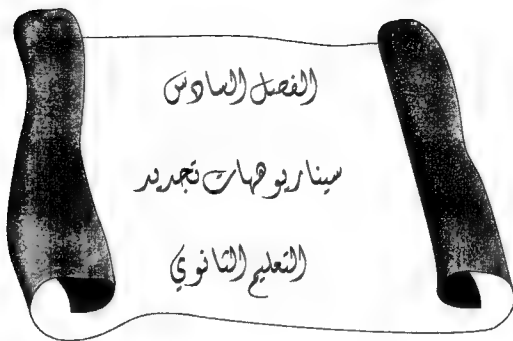 الفصل السادس
سيناريوهات تجديد
التعليم الثانوي